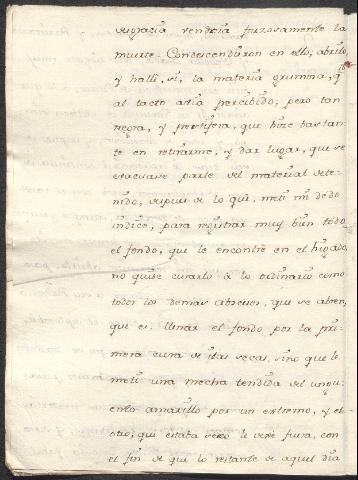 desgracia vendria forzosamente la
muerte. Condescendieron en ello; abrilo,
y hallè, sì, la materia grumina, q
al tacto avia percibido; pero tan
negra, y pestifera, que hize bastan-
te en retirarme, y dar lugar, que se
evacuase parte del material dete-
nido, despues de lo què, metì mi dedo
indice, para registrar muy bien todo
el fondo, que le encontrè en el higado,
no quise curarlo à lo ordinario como
todos los demàs abscesos, que se abren,
que es, llenar el fondo por la pri-
mera cura de ilas secas, sino que le
metì una mecha tendida del ungu-
ento amarillo por un extremo, y el
otro, que estaba seco le dexè fuera, con
el fin de que lo restante de aquel dia